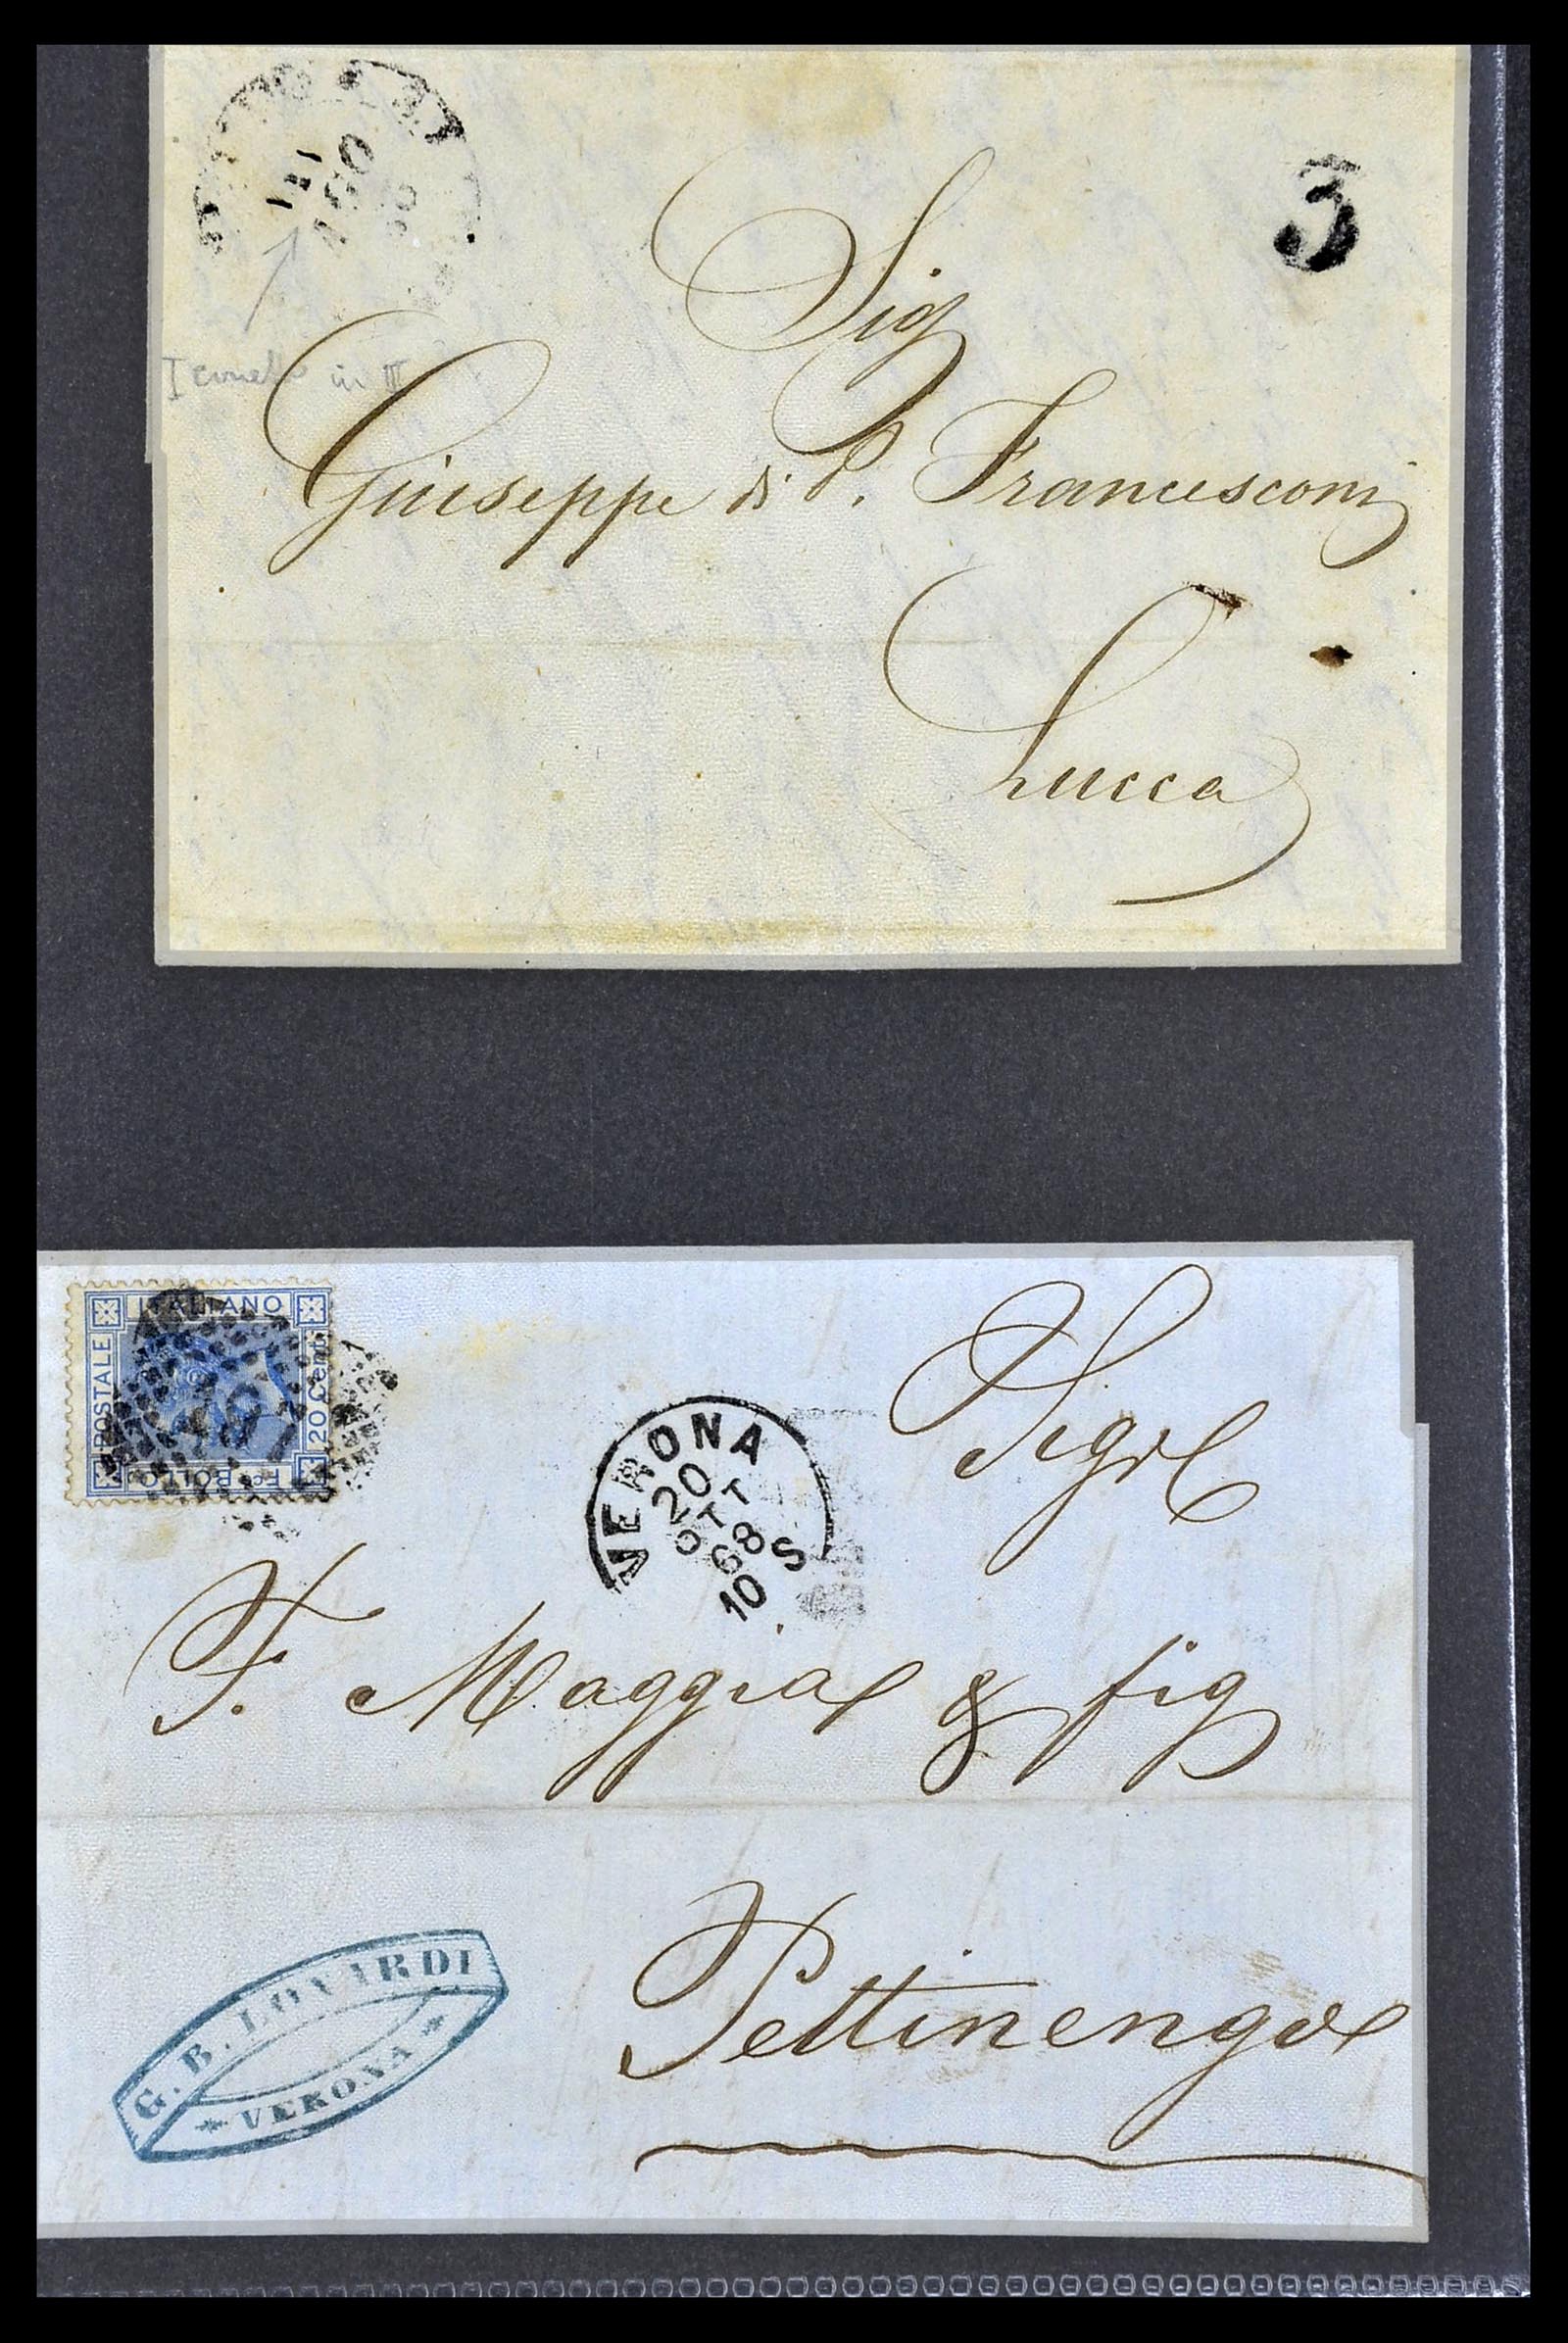 AGO
3
Sig
Giuseppe di P. Francesconi
Lucca
ITALIANO
POSTALE
20 Cent
Fco BOLLO
VERONA
20
OTT
68
10 S
Sigri
F. Maggia & fig
Pettinengo
G. B. LONARDI
VERONA